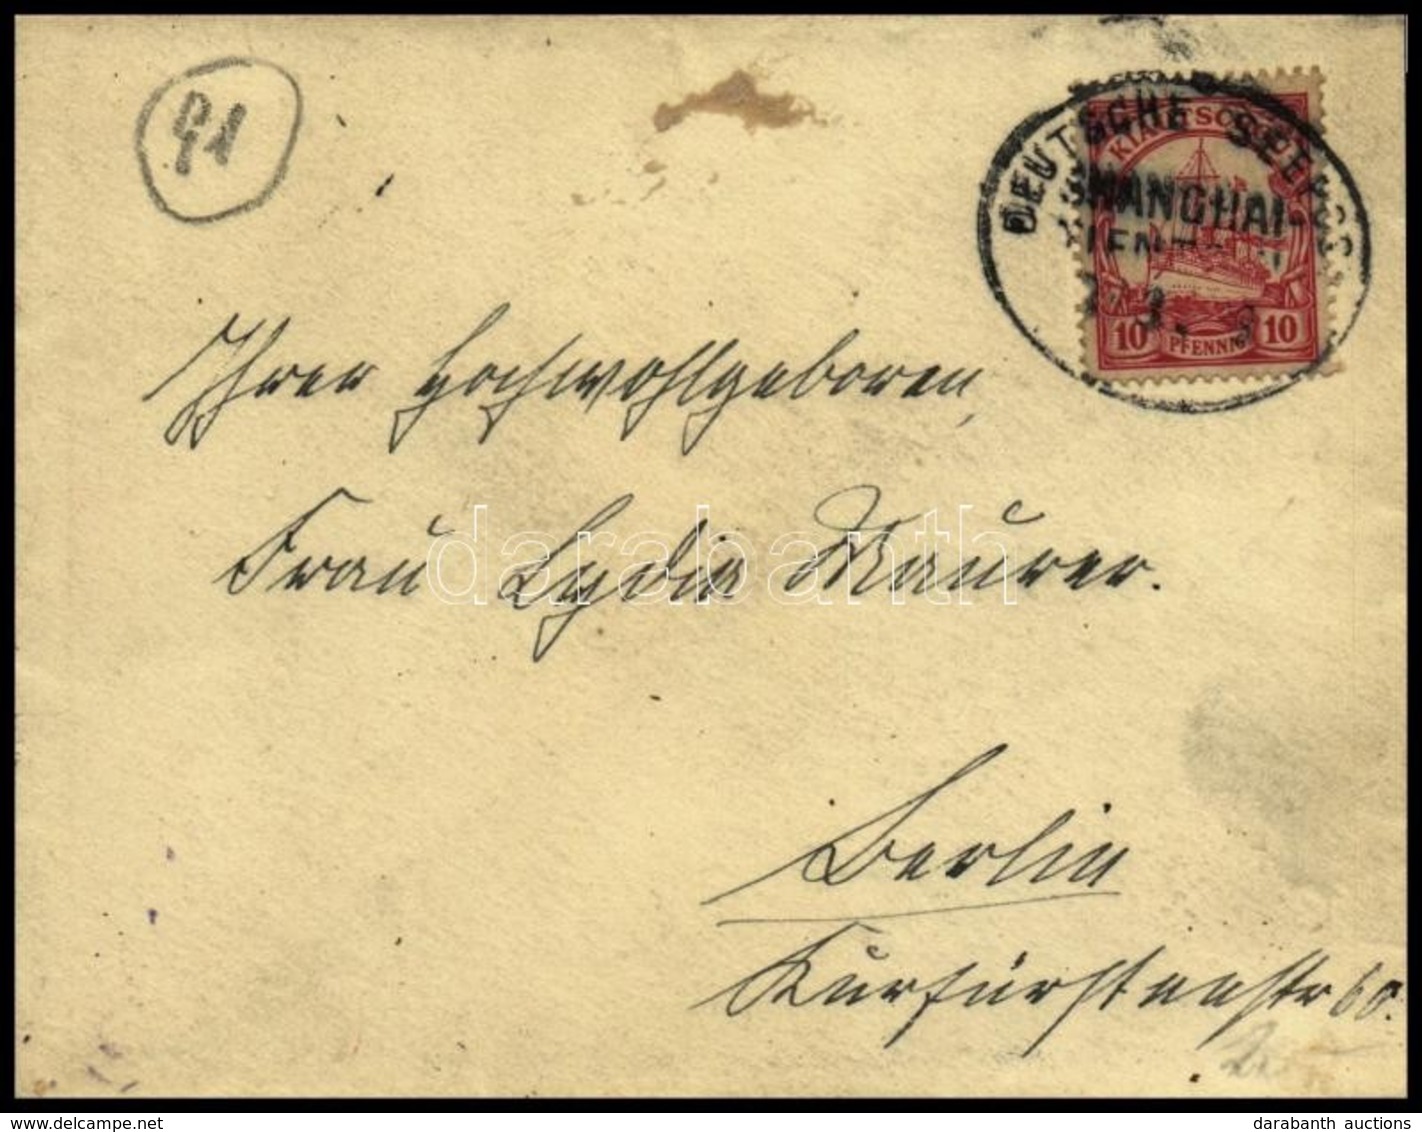 91
DEUTSCHE SEEPOST
SHANGHAI-
KIAUTSCHOU
10 PFENNIG 10
Ihrer Hochwohlgeboren,
Frau Lydia Maurer.
darabanth
Berlin
Kurfürstenstr 60.
darabanth auctions